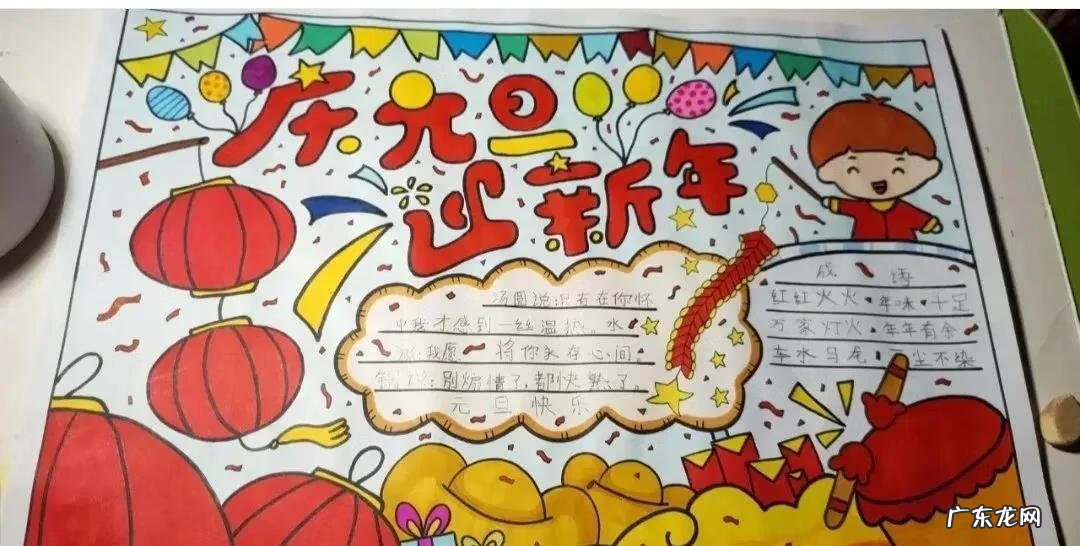 庆元旦
迎新年
汤圆说:只有在你怀
中我才感到一丝温热。水
说:我愿 将你永存心间。
锅说:别煽情了,都快熟了。
元旦快乐
成 语
红红火火 年味十足
万家灯火 年年有余
车水马龙 一尘不染
广东龙网